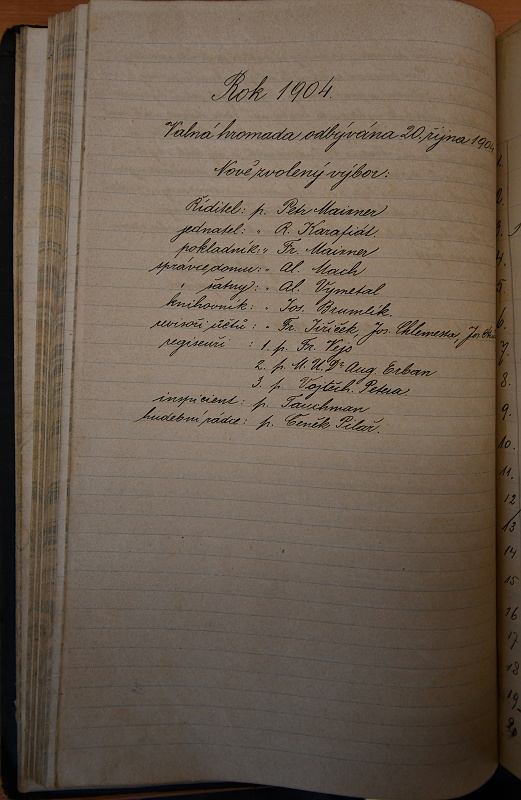 Rok 1904.
Valná hromada odbývána 20. října 1904
Nově zvolený výbor:
Ředitel: p. Petr Maixner
jednatel: " R. Karafiát
pokladník: " Fr. Maixner
správce domu: " Al. Mach
" šatny: " Al. Vymetal
knihovník: " Jos. Brumlík.
revisoři účtů: " Fr. Jiříček, Jos. Chlemesta, Jos.
regisseuři : 1. p. Fr. Vejs
2. p. M.U.Dr Aug. Erban
3. p. Vojtěch Petera
inspicient: p. Tauchman
hudební rádce: p. Čeněk Pilař.
1.
2.
3.
4.
5
6.
7.
8.
9.
10.
11.
12
13
14
15
16
17
18
19
20